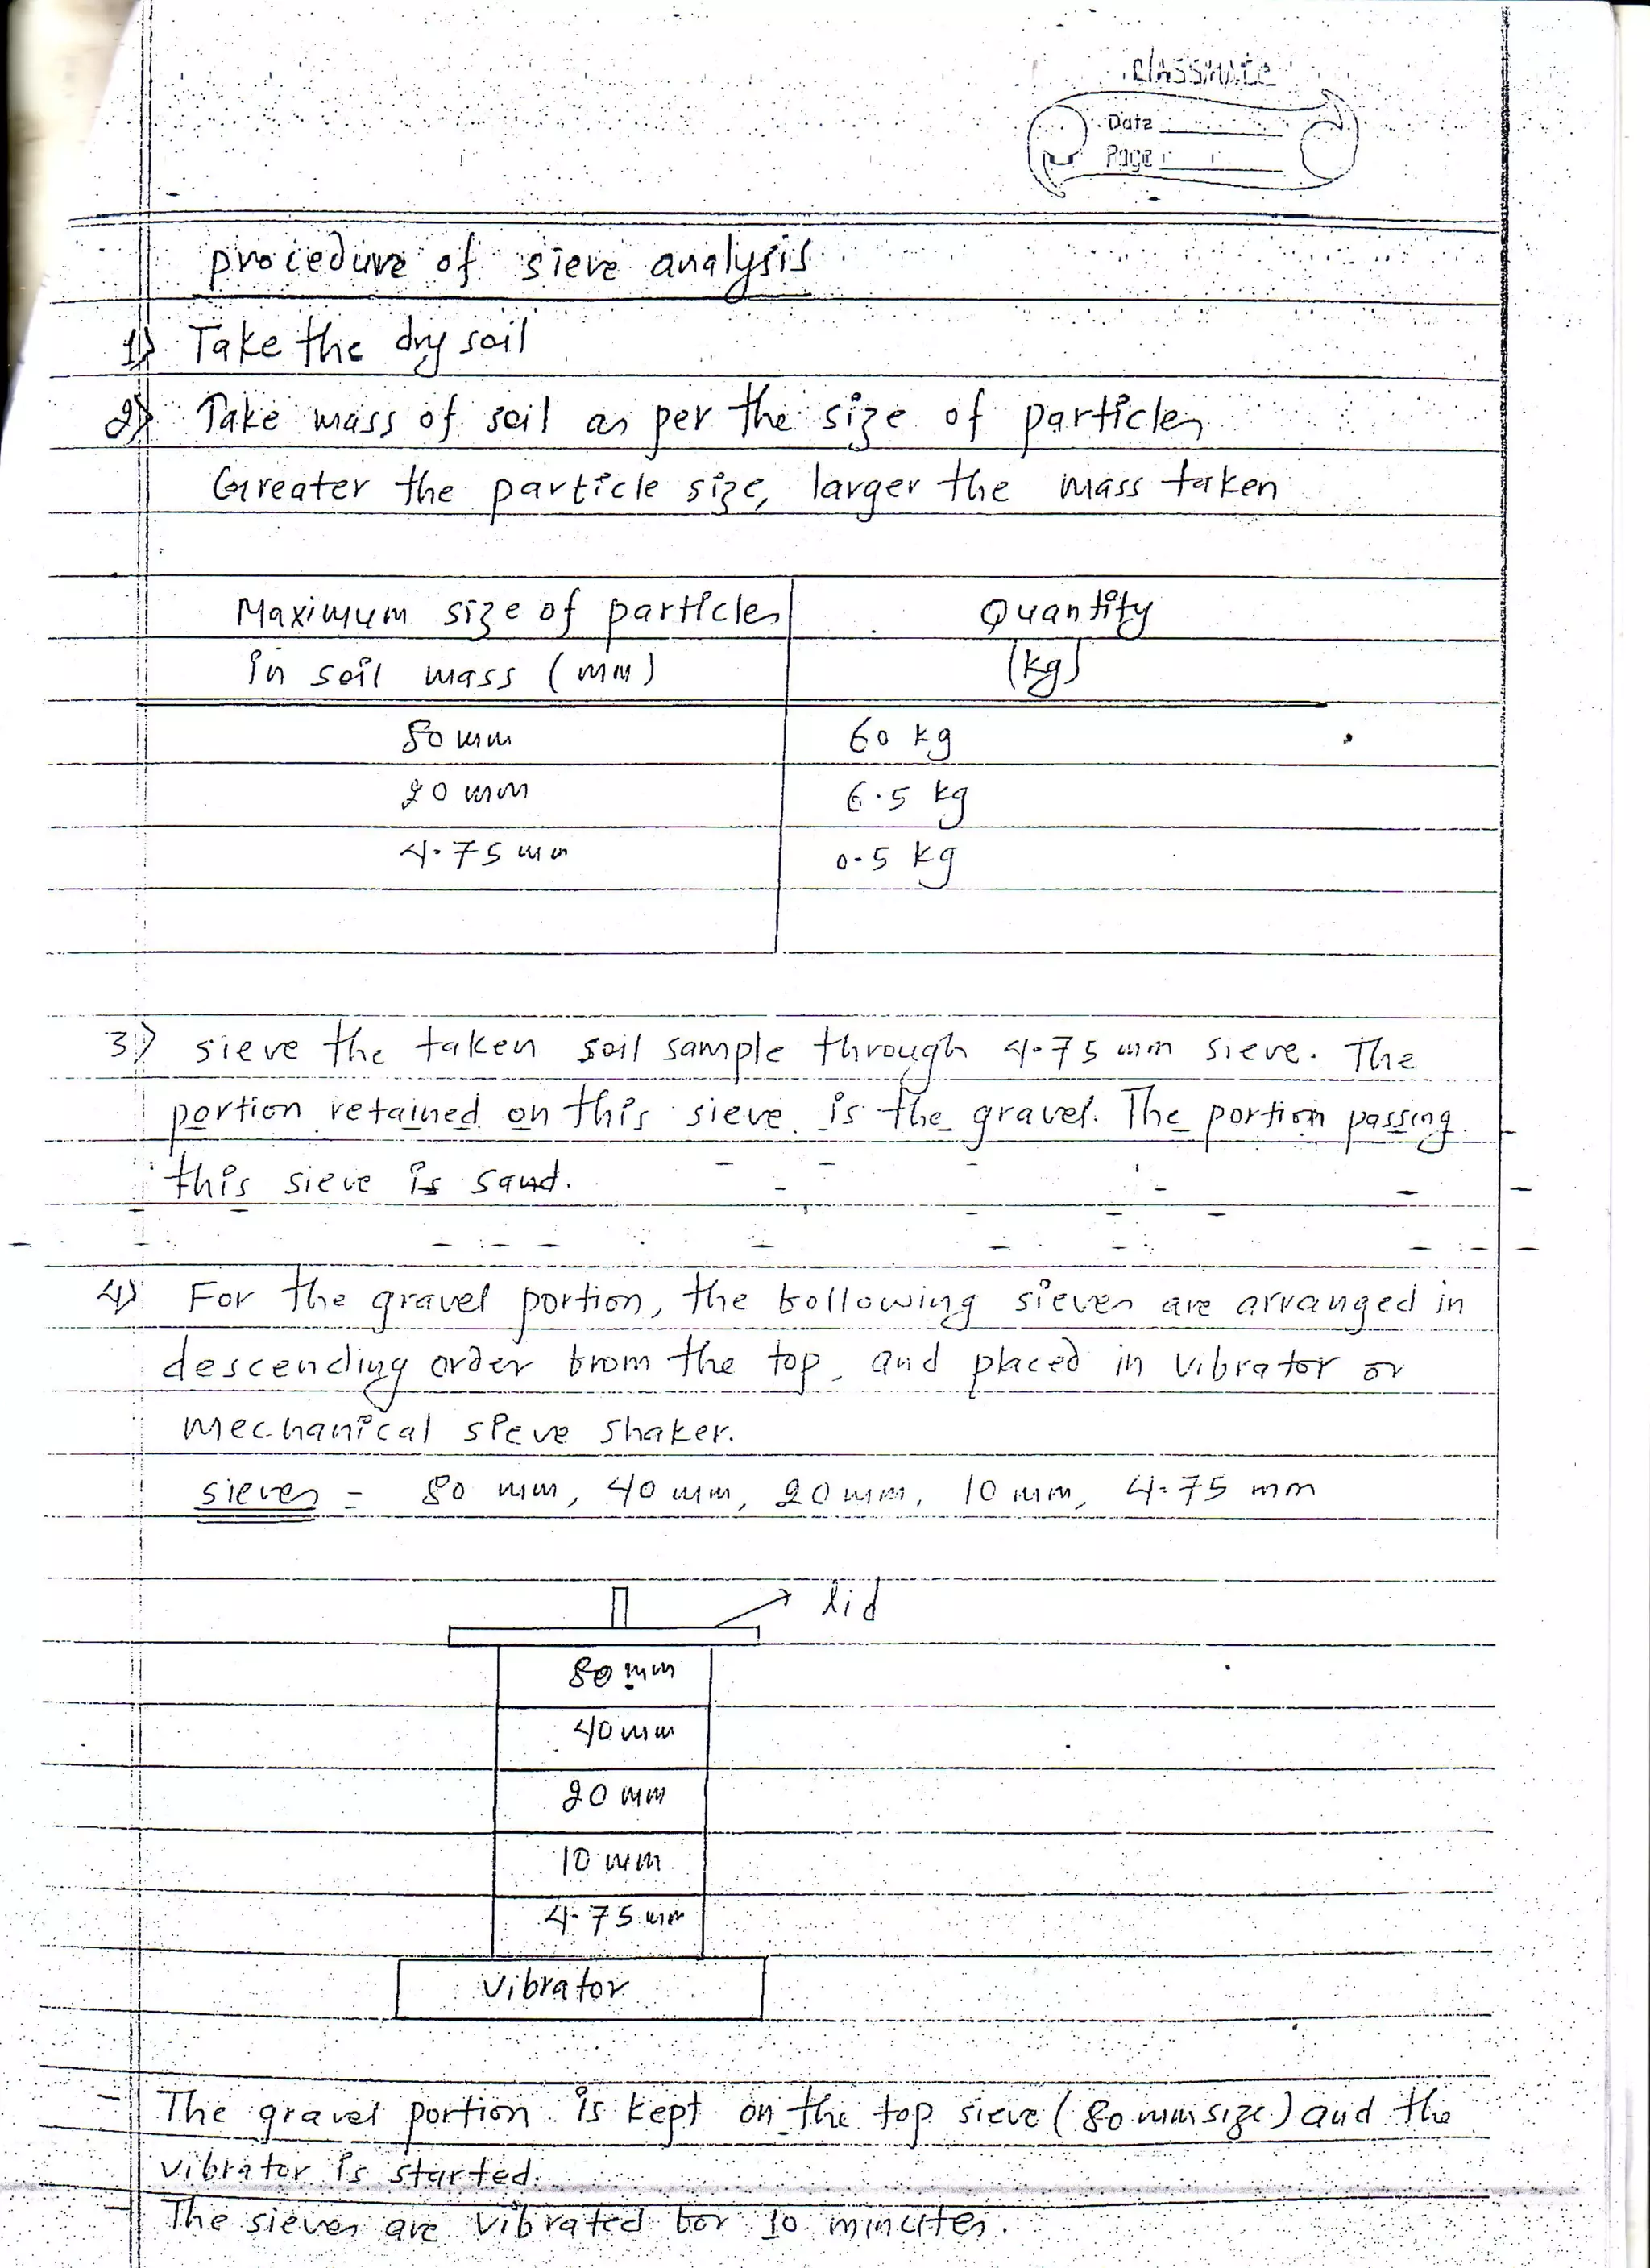 classmate
Date
Page
procedure of sieve analysis
1) Take the dry soil
2) Take mass of soil as per the size of particles
Greater the particle size, larger the mass taken
Maximum size of particles Quantity
in soil mass (mm) (kg)
80 mm 60 kg
20 mm 6.5 kg
4.75 mm 0.5 kg
3) sieve the taken soil sample through 4.75 mm sieve. The
portion retained on this sieve is the gravel. The portion passing
this sieve is sand.
4) For the gravel portion, the following sieves are arranged in
descending order from the top, and placed in vibrator or
mechanical sieve shaker.
sieves = 80 mm, 40 mm, 20 mm, 10 mm, 4.75 mm
lid
80 mm
40 mm
20 mm
10 mm
4.75 mm
vibrator
- The gravel portion is kept on the top sieve (80 mm size) and the
vibrator is started.
- The sieves are vibrated for 10 minutes.